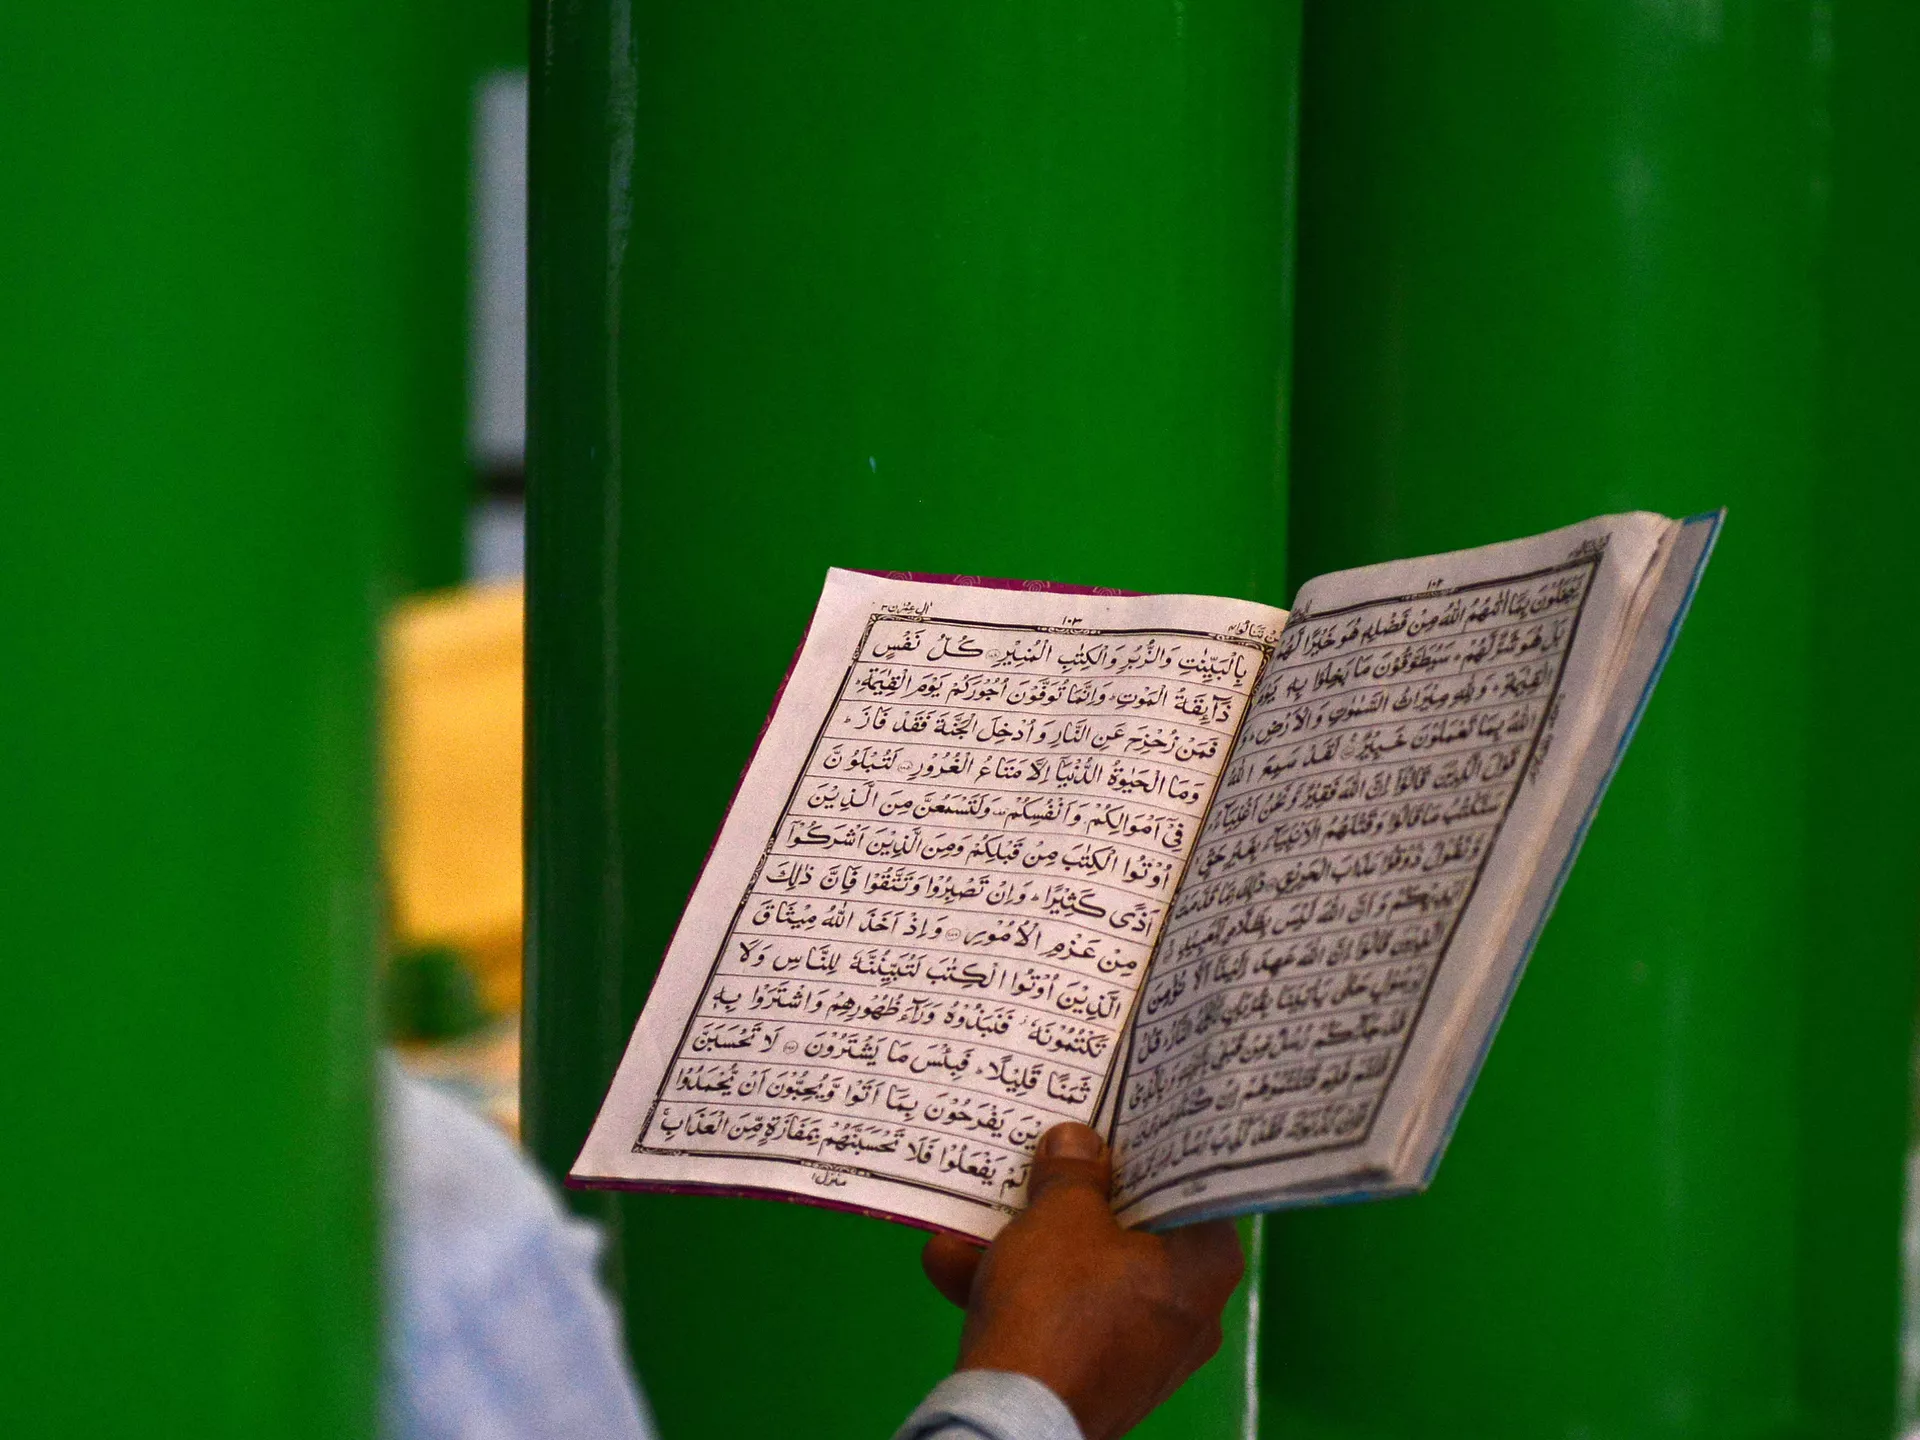 ١٠٢
يَبْخَلُوْنَ بِمَاۤ اٰتٰىهُمُ اللّٰهُ مِنْ فَضْلِهٖ هُوَ خَيْرًا لَّهُمْ
بَلْ هُوَ شَرٌّ لَّهُمْ ؕ سَيُطَوَّقُوْنَ مَا بَخِلُوْا بِهٖ يَوْمَ
الْقِيٰمَةِ ؕ وَلِلّٰهِ مِيْرَاثُ السَّمٰوٰتِ وَالْاَرْضِ ؕ وَ
اللّٰهُ بِمَا تَعْمَلُوْنَ خَبِيْرٌ لَقَدْ سَمِعَ اللّٰهُ
قَوْلَ الَّذِيْنَ قَالُوْۤا اِنَّ اللّٰهَ فَقِيْرٌ وَّنَحْنُ اَغْنِيَآءُ
سَنَكْتُبُ مَا قَالُوْا وَقَتْلَهُمُ الْاَنْۢبِيَآءَ بِغَيْرِ حَقٍّ
وَّنَقُوْلُ ذُوْقُوْا عَذَابَ الْحَرِيْقِ ذٰلِكَ بِمَا قَدَّمَتْ
اَيْدِيْكُمْ وَاَنَّ اللّٰهَ لَيْسَ بِظَلَّامٍ لِّلْعَبِيْدِ
اَلَّذِيْنَ قَالُوْۤا اِنَّ اللّٰهَ عَهِدَ اِلَيْنَاۤ اَلَّا نُؤْمِنَ
لِرَسُوْلٍ حَتّٰى يَاْتِيَنَا بِقُرْبَانٍ تَاْكُلُهُ النَّارُ ؕ قُلْ
قَدْ جَآءَكُمْ رُسُلٌ مِّنْ قَبْلِيْ بِالْبَيِّنٰتِ وَبِالَّذِيْ
قُلْتُمْ فَلِمَ قَتَلْتُمُوْهُمْ اِنْ كُنْتُمْ صٰدِقِيْنَ
فَاِنْ كَذَّبُوْكَ فَقَدْ كُذِّبَ رُسُلٌ مِّنْ
لن تنالوا ٤ ١٠٣ اٰل عمرٰن ٣
بِالْبَيِّنٰتِ وَالزُّبُرِ وَالْكِتٰبِ الْمُنِيْرِ ﴿۱۸۴﴾ كُلُّ نَفْسٍ
ذَآئِقَةُ الْمَوْتِ ؕ وَاِنَّمَا تُوَفَّوْنَ اُجُوْرَكُمْ يَوْمَ الْقِيٰمَةِ ؕ
فَمَنْ زُحْزِحَ عَنِ النَّارِ وَاُدْخِلَ الْجَنَّةَ فَقَدْ فَازَ ؕ
وَمَا الْحَيٰوةُ الدُّنْيَاۤ اِلَّا مَتَاعُ الْغُرُوْرِ ﴿۱۸۵﴾ لَتُبْلَوُنَّ
فِيْۤ اَمْوَالِكُمْ وَاَنْفُسِكُمْ وَلَتَسْمَعُنَّ مِنَ الَّذِيْنَ
اُوْتُوا الْكِتٰبَ مِنْ قَبْلِكُمْ وَمِنَ الَّذِيْنَ اَشْرَكُوْۤا
اَذًى كَثِيْرًا ؕ وَاِنْ تَصْبِرُوْا وَتَتَّقُوْا فَاِنَّ ذٰلِكَ
مِنْ عَزْمِ الْاُمُوْرِ ﴿۱۸۶﴾ وَاِذْ اَخَذَ اللّٰهُ مِيْثَاقَ
الَّذِيْنَ اُوْتُوا الْكِتٰبَ لَتُبَيِّنُنَّهٗ لِلنَّاسِ وَلَا
تَكْتُمُوْنَهٗ ؗ فَنَبَذُوْهُ وَرَآءَ ظُهُوْرِهِمْ وَاشْتَرَوْا بِهٖ
ثَمَنًا قَلِيْلًا ؕ فَبِئْسَ مَا يَشْتَرُوْنَ ﴿۱۸۷﴾ لَا تَحْسَبَنَّ
يْنَ يَفْرَحُوْنَ بِمَاۤ اَتَوْا وَّيُحِبُّوْنَ اَنْ يُّحْمَدُوْا
لَمْ يَفْعَلُوْا فَلَا تَحْسَبَنَّهُمْ بِمَفَازَةٍ مِّنَ الْعَذَابِ ۚ
منزل ١